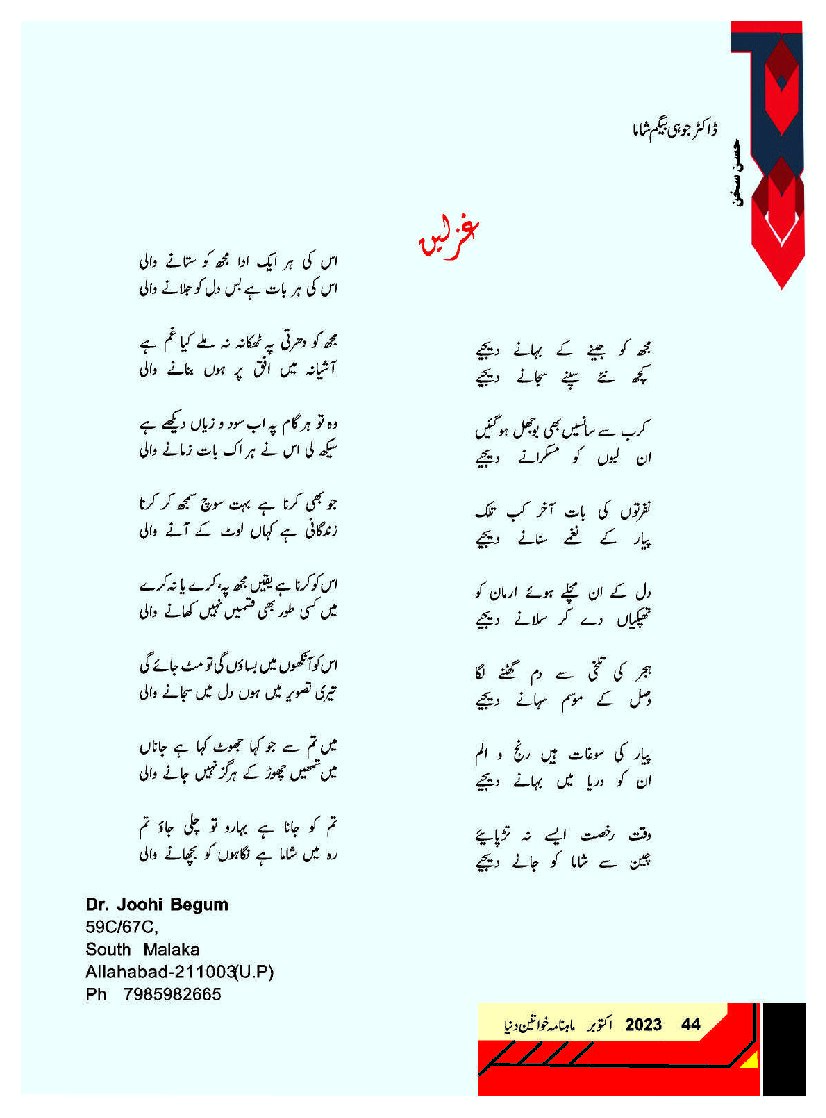 ڈاکٹر جوہی بیگم شاما
حسن سخن
غزلیں
مجھ کو جینے کے بہانے دیجیے
کچھ نئے سپنے سجانے دیجیے
کرب سے سانسیں بھی بوجھل ہوگئیں
ان لبوں کو مسکرانے دیجیے
نفرتوں کی بات آخر کب تلک
پیار کے نغمے سنانے دیجیے
دل کے ان مچلے ہوئے ارمان کو
تھپکیاں دے کر سلانے دیجیے
ہجر کی تلخی سے دم گھٹنے لگا
وصل کے موسم سہانے دیجیے
پیار کی سوغات ہیں رنج و الم
ان کو دریا میں بہانے دیجیے
وقت رخصت ایسے نہ تڑپایئے
چین سے شاما کو جانے دیجیے
اس کی ہر ایک ادا مجھ کو ستانے والی
اس کی ہر بات ہے بس دل کو جلانے والی
مجھ کو دھرتی پہ ٹھکانہ نہ ملے کیا غم ہے
آشیانہ میں افق پر ہوں بنانے والی
وہ تو ہر گام پہ اب سود و زیاں دیکھے ہے
سیکھ لی اس نے ہر اک بات زمانے والی
جو بھی کرنا ہے بہت سوچ سمجھ کر کرنا
زندگانی ہے کہاں لوٹ کے آنے والی
اس کو کرنا ہے یقیں مجھ پہ، کرے یا نہ کرے
میں کسی طور بھی قسمیں نہیں کھانے والی
اس کو آنکھوں میں بساؤں گی تو مٹ جائے گی
تیری تصویر میں ہوں دل میں سجانے والی
میں تم سے جو کہا جھوٹ کہا ہے جاناں
میں تمھیں چھوڑ کے ہرگز نہیں جانے والی
تم کو جانا ہے بہارو تو چلی جاؤ تم
رہ میں شاما ہے نگاہوں کو بچھانے والی
Dr. Joohi Begum
59C/67C,
South Malaka
Allahabad-211003(U.P)
Ph 7985982665
ماہنامہ خواتین دنیا اکتوبر 2023 44